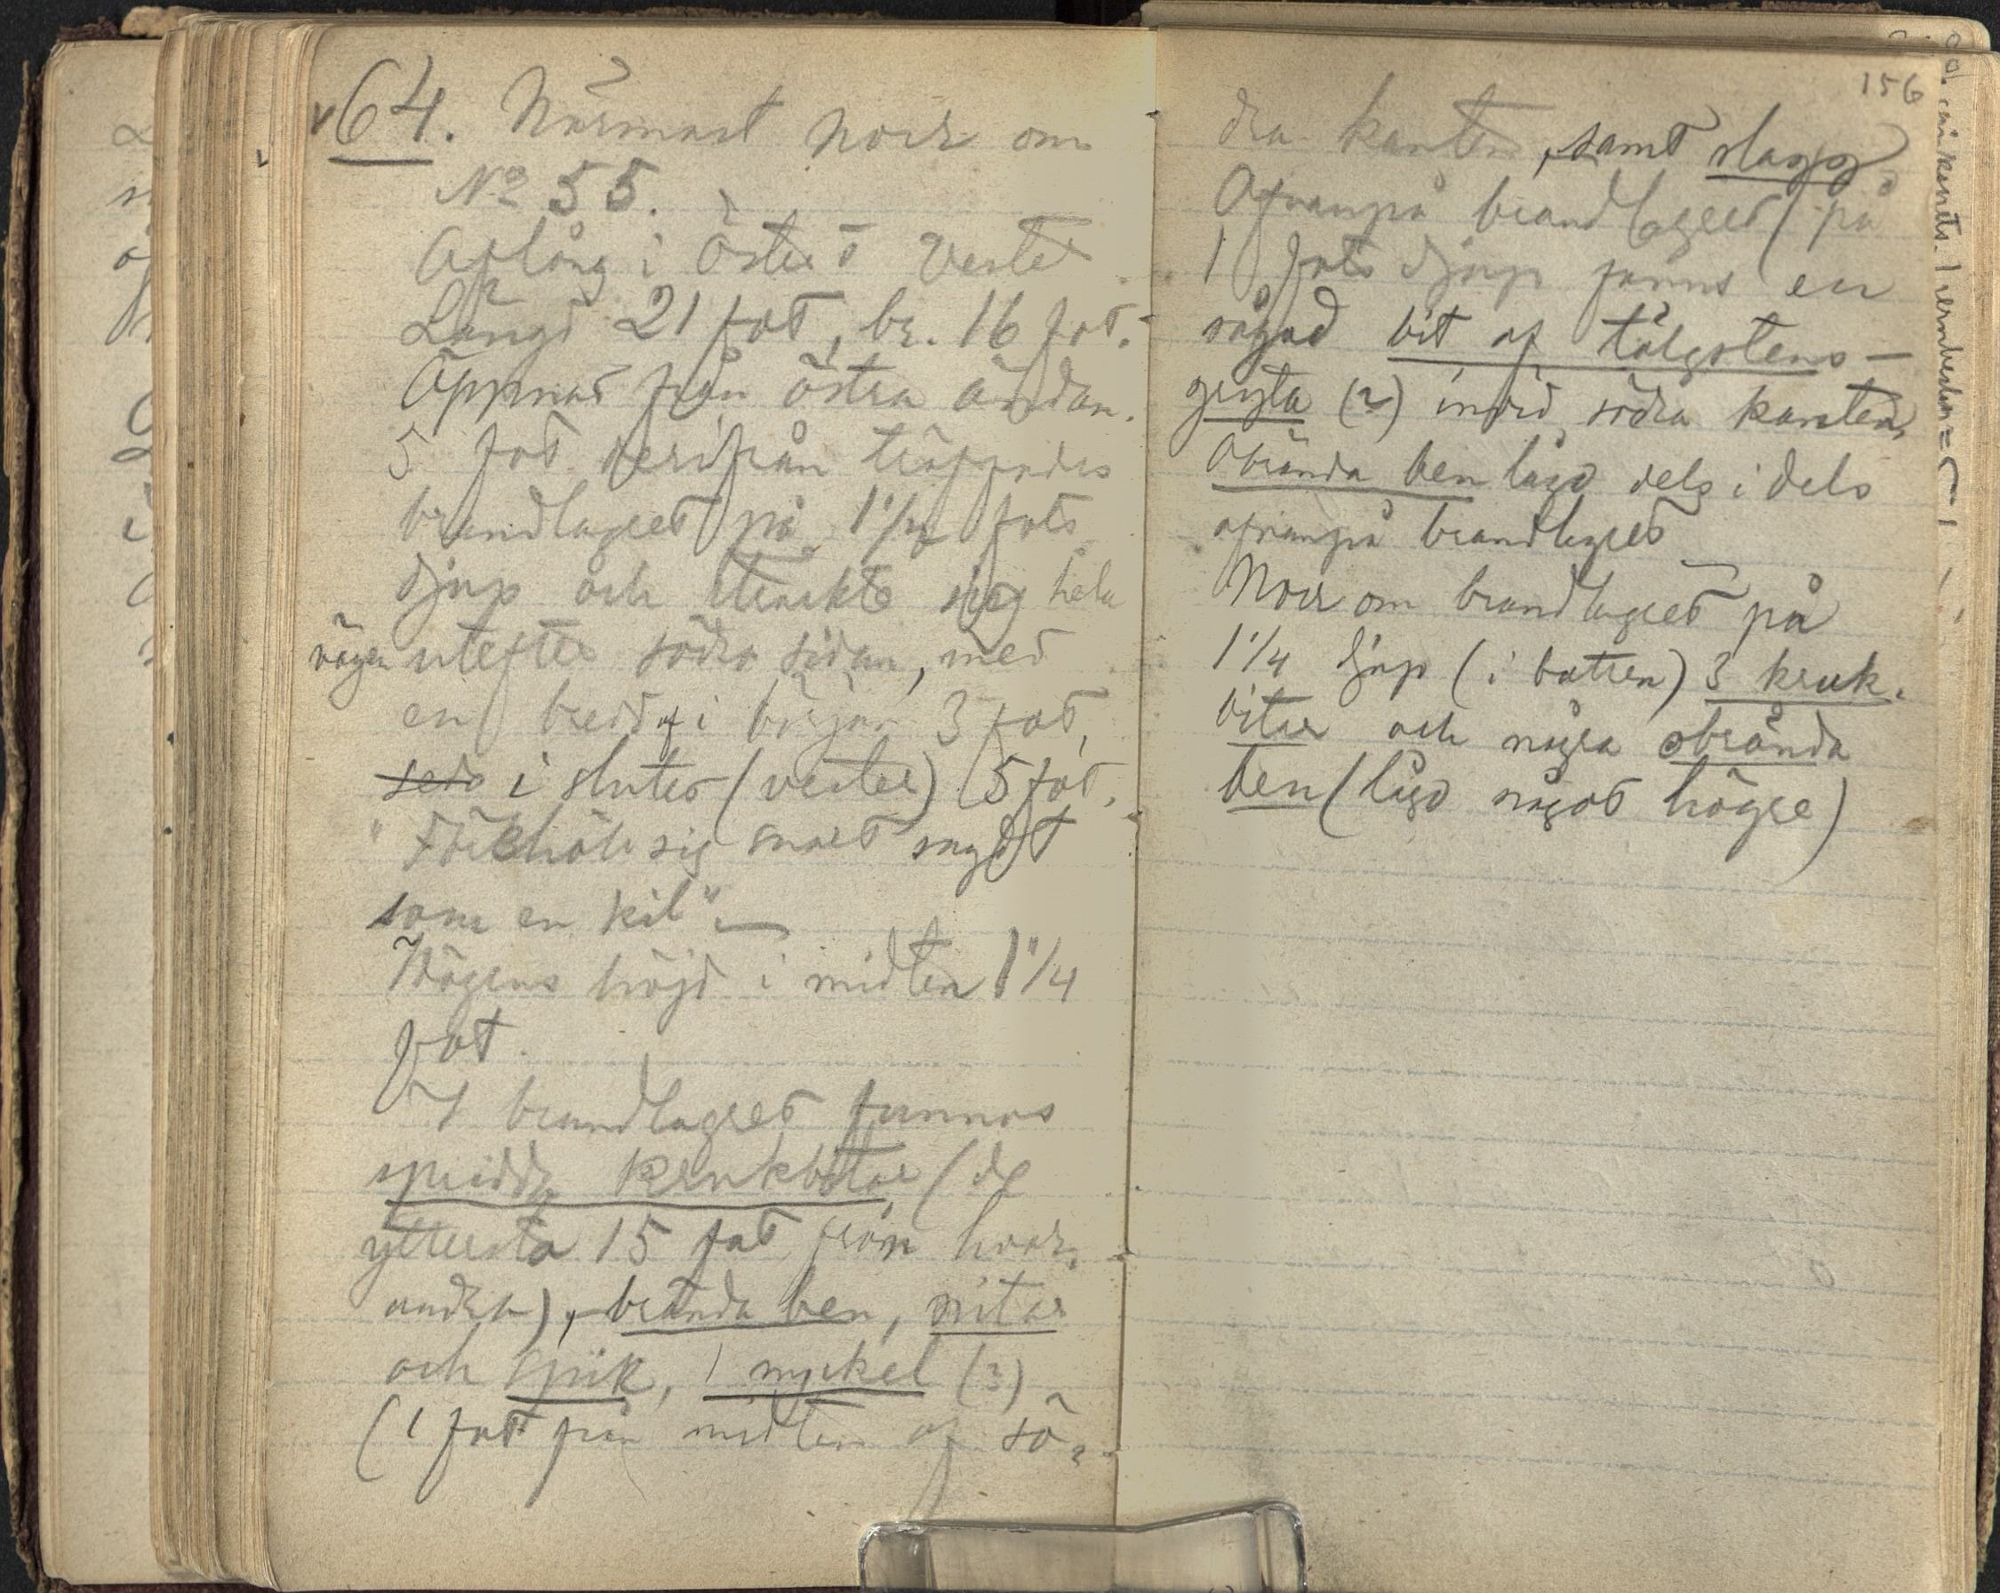 64. Närmast norr om
No 55.
Aflång i öster o vester
Längd 21 fot, br. 16 fot.
Öppnad från östra ändan.
5 fot derifrån träffades
brandlagret på 1 1/4 fots
djup och sträckte sig hela
vägen utefter södra sidan, med
en bredd af i början 3 fot,
i slutet (vester) 5 fot.
"Förehöll sig snart sagdt
som en kil".—
Högens höjd i midten 1 1/4
fot.
I brandlagret funnos
spridda krukbitar (de
yttersta 15 fot från hvar-
andra), brända ben, nitar
och spik, 1 nyckel (3)
(1 fot från midten af sö-
156
dra kanten, samt slagg.
Ofvanpå brandlagret (på
1 fots djup fanns en
sågad bit af täljstens-
gryta (2) invid södra kanten.
Obrända ben lågo dels i dels
ofvanpå brandlagret
Norr om brandlagret på
1 1/4 djup (i botten) 3 kruk-
bitar och några obrända
ben (lågo något högre)